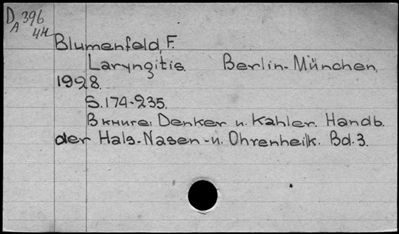 D 396
A 4H
Blumenfeld, F.
Laryngitis. Berlin-München,
1928.
S. 174-235.
В книге: Denker u. Kahler. Handb.
der Hals-Nasen-u. Ohrenheilk. Bd. 3.